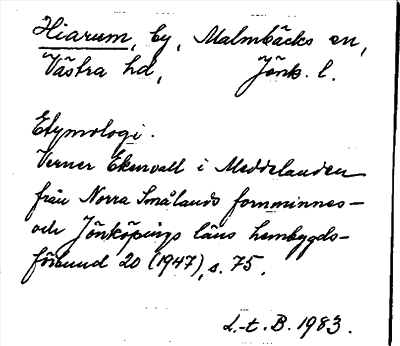 Hiarum, by, Malmbäcks sn,
Västra hd, Jönk. l.
Etymologi.
Verner Ekenvall i Meddelanden
från Norra Smålands fornminnes-
och Jönköpings läns hembygds-
förbund 20 (1947), s. 75.
L.-t. B. 1983.